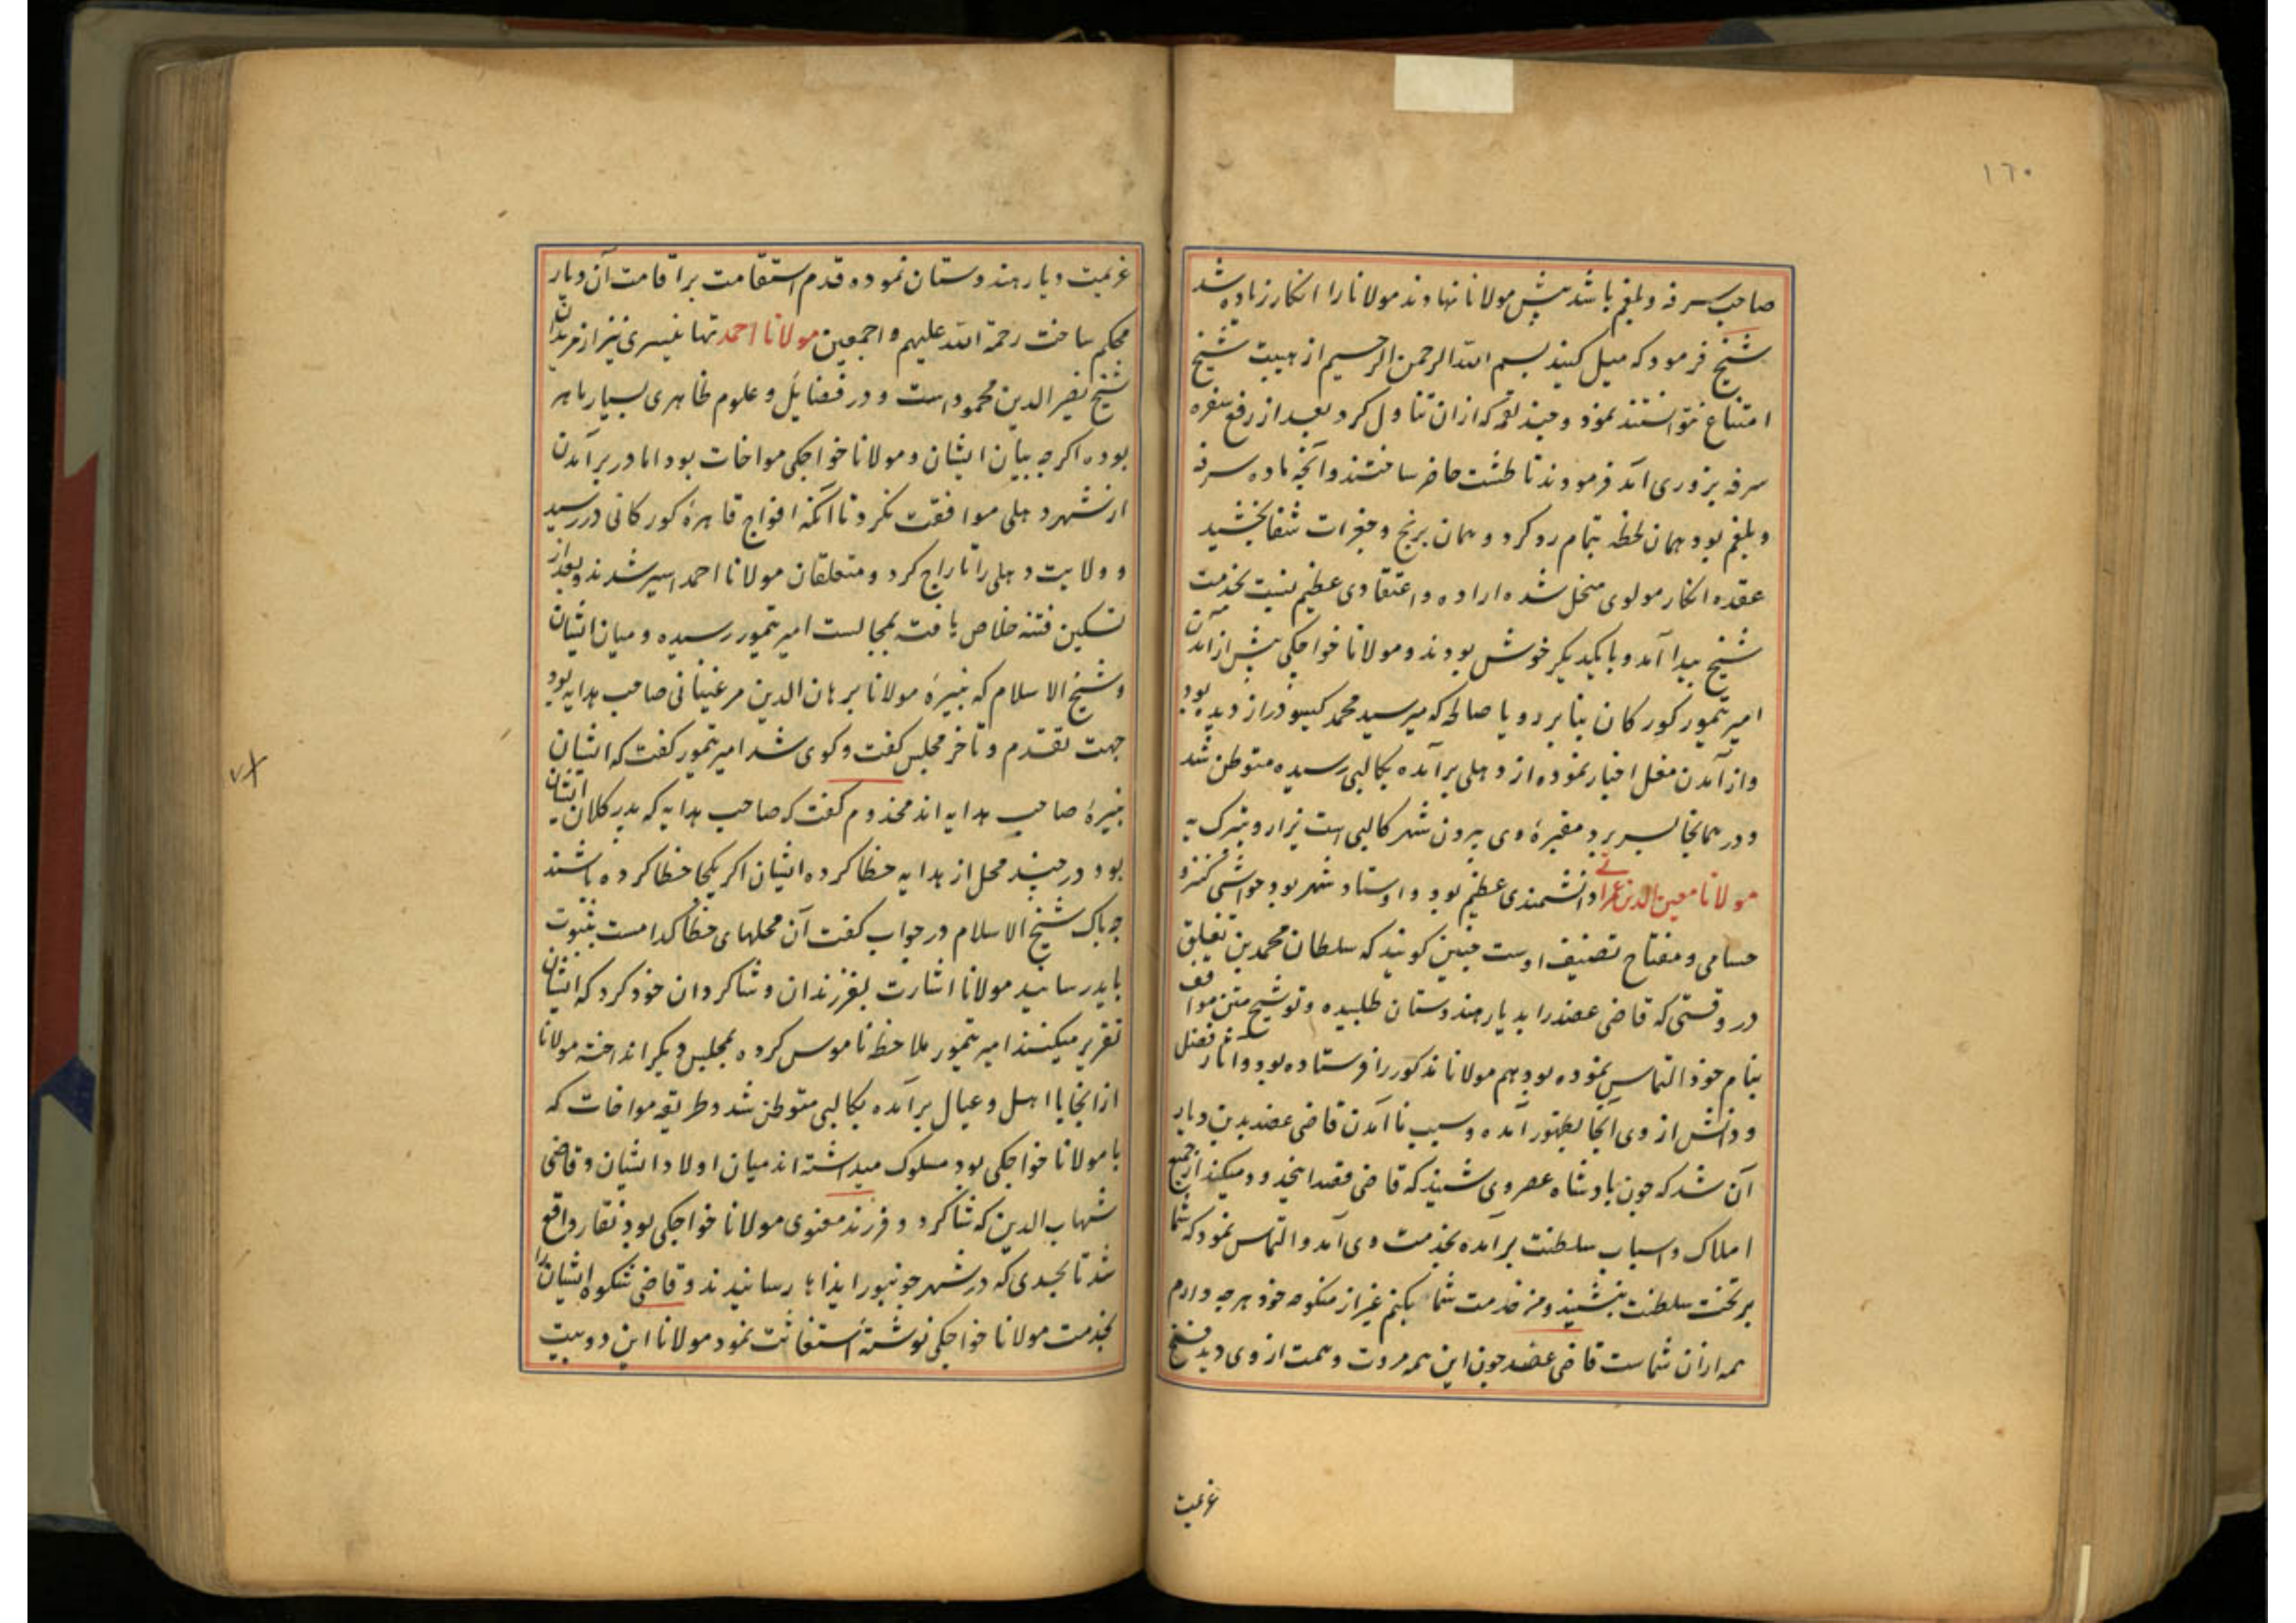 ١٦٠
صاحب سرفه و بلغم باشد پیش مولانا نهادند مولانا را انکار زیاده شد
شیخ فرمود که میل کنید بسم الله الرحمن الرحیم از هیبت شیخ
امتناع نتوانستند نمود و چند لقمه که ازان تناول کرد بعد از رفع سفره
سرفه بزوری آمد فرمودند تا طشت حاضر ساختند و آنچه ماده سرفه
و بلغم بود همان لحظه بتمام رد کرد و همان برنج و جغرات شفا بخشید
عقده انکار مولوی منحل شده اراده و اعتقادی عظیم نسبت بخدمت
شیخ پیدا آمد و با یکدیگر خوش بودند و مولانا خواجکی پیش از آمدن
امیر تیمور کورکان بنا بر رویا صالحه که میر سید محمد کیسو دراز دیده بود
و از آمدن مغل اخبار نموده از دهلی برآمده بکالپی رسیده متوطن شد
و در همانجا بسر برد مقبرۀ وی بیرون شهر کالپی است یزار و یتبرک به
مولانا معین الدین عمرانی دانشمندی عظیم بود و اوستاد شهر بود حواشی کنز و
حسامی و مفتاح تصنیف اوست چنین کویند که سلطان محمد بن تغلق
در وقتی که قاضی عضد را بدیار هندوستان طلبیده و توشیح متن مواقف
بنام خود التماس نموده بود هم مولانا مذکور را فرستاده بود و آثار فضل
و دانش از وی آنجا بظهور آمده و سبب نا آمدن قاضی عضد بدین دیار
آن شد که چون بادشاه عصر وی شنید که قاضی قصد اینحدود میکند از جمیع
املاک و اسباب سلطنت برآمده بخدمت وی آمد و التماس نمود که شما
بر تخت سلطنت بنشینید و من خدمت شما بکنم غیر از منکوحه خود هرچه دارم
همه ازان شماست قاضی عضد چون این همه مروت و همت از وی دید فسخ
عزیمت
عزیمت دیار هندوستان نموده قدم استقامت بر اقامت آن دیار
محکم ساخت رحمة الله علیهم واجمعین مولانا احمد تهانیسری نیز از مریدان
شیخ نصیر الدین محمود است و در فضایل و علوم ظاهری بسیار ماهر
بوده اکرچه بیان ایشان و مولانا خواجکی مواخات بود اما در برآمدن
از شهر دهلی موافقت نکرد تا آنکه افواج قاهرۀ کورکانی در رسید
و ولایت دهلی را تاراج کرد و متعلقان مولانا احمد اسیر شدند و بعد از
تسکین فتنه خلاص یافته بمجالست امیر تیمور رسیده و میان ایشان
و شیخ الاسلام که نبیرۀ مولانا برهان الدین مرغینانی صاحب هدایه بود
جهت تقدم و تاخر مجلس کفت و کوی شد امیر تیمور کفت که ایشان
نبیرۀ صاحب هدایه اند مخدوم کفت که صاحب هدایه که پدر کلان ایشان
بود در چند محل از هدایه خطا کرده ایشان اکر یکجا خطا کرده باشند
چه باک شیخ الاسلام در جواب کفت آن محلهای خطا کدامست بثبوت
باید رسانید مولانا اشارت بفرزندان و شاکردان خود کرد که ایشان
تقریر میکنند امیر تیمور ملاحظه ناموس کرده بمجلس دیکر انداخته مولانا
از انجا با اهل و عیال برآمده بکالپی متوطن شد و طریقه مواخات که
با مولانا خواجکی بود مسلوک میداشته اند میان اولاد ایشان و قاضی
شهاب الدین که شاکرد و فرزند معنوی مولانا خواجکی بود نقار واقع
شد تا بحدی که در شهر جونپور ایذاها رسانیدند و قاضی شکوه ایشان را
بخدمت مولانا خواجکی نوشته استغاثت نمود مولانا این دو بیت